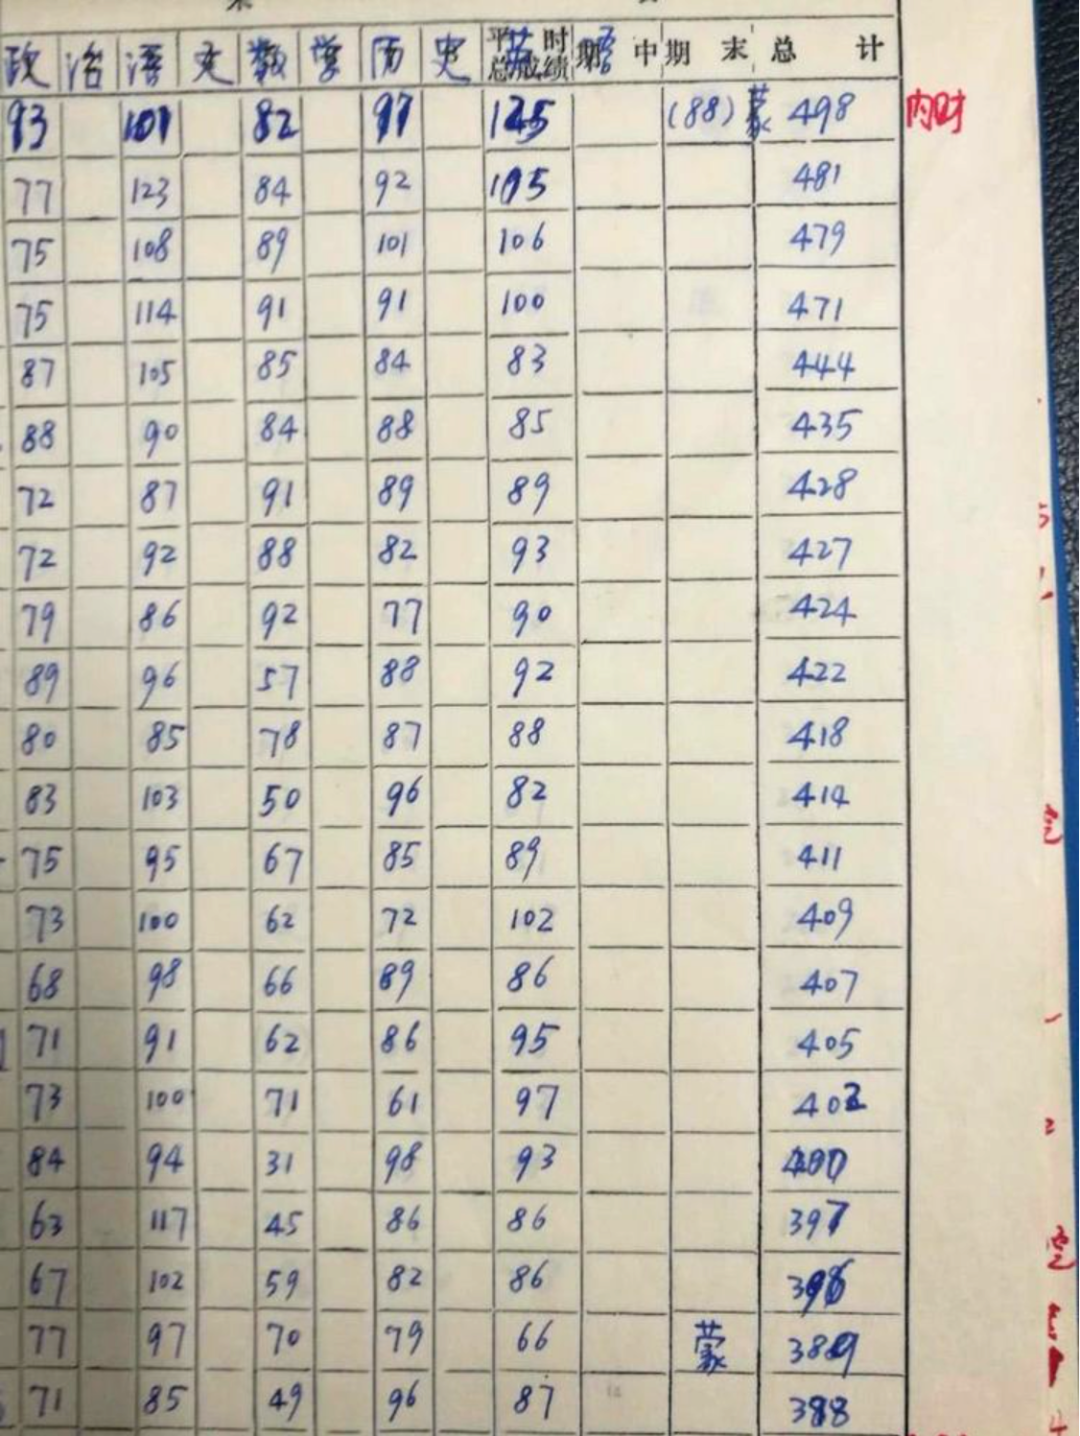 政治 语文 数学 历史 英语 平时总成绩 期中 期末 总计
93 101 82 97 125 (88) 蒙 498 内财
77 123 84 92 105 481
75 108 89 101 106 479
75 114 91 91 100 471
87 105 85 84 83 444
88 90 84 88 85 435
72 87 91 89 89 428
72 92 88 82 93 427
79 86 92 77 90 424
89 96 57 88 92 422
80 85 78 87 88 418
83 103 50 96 82 414
75 95 67 85 89 411
73 100 62 72 102 409
68 98 66 89 86 407
71 91 62 86 95 405
73 100 71 61 97 402
84 94 31 98 93 400
63 117 45 86 86 397
67 102 59 82 86 396
77 97 70 79 66 蒙 389
71 85 49 96 87 388